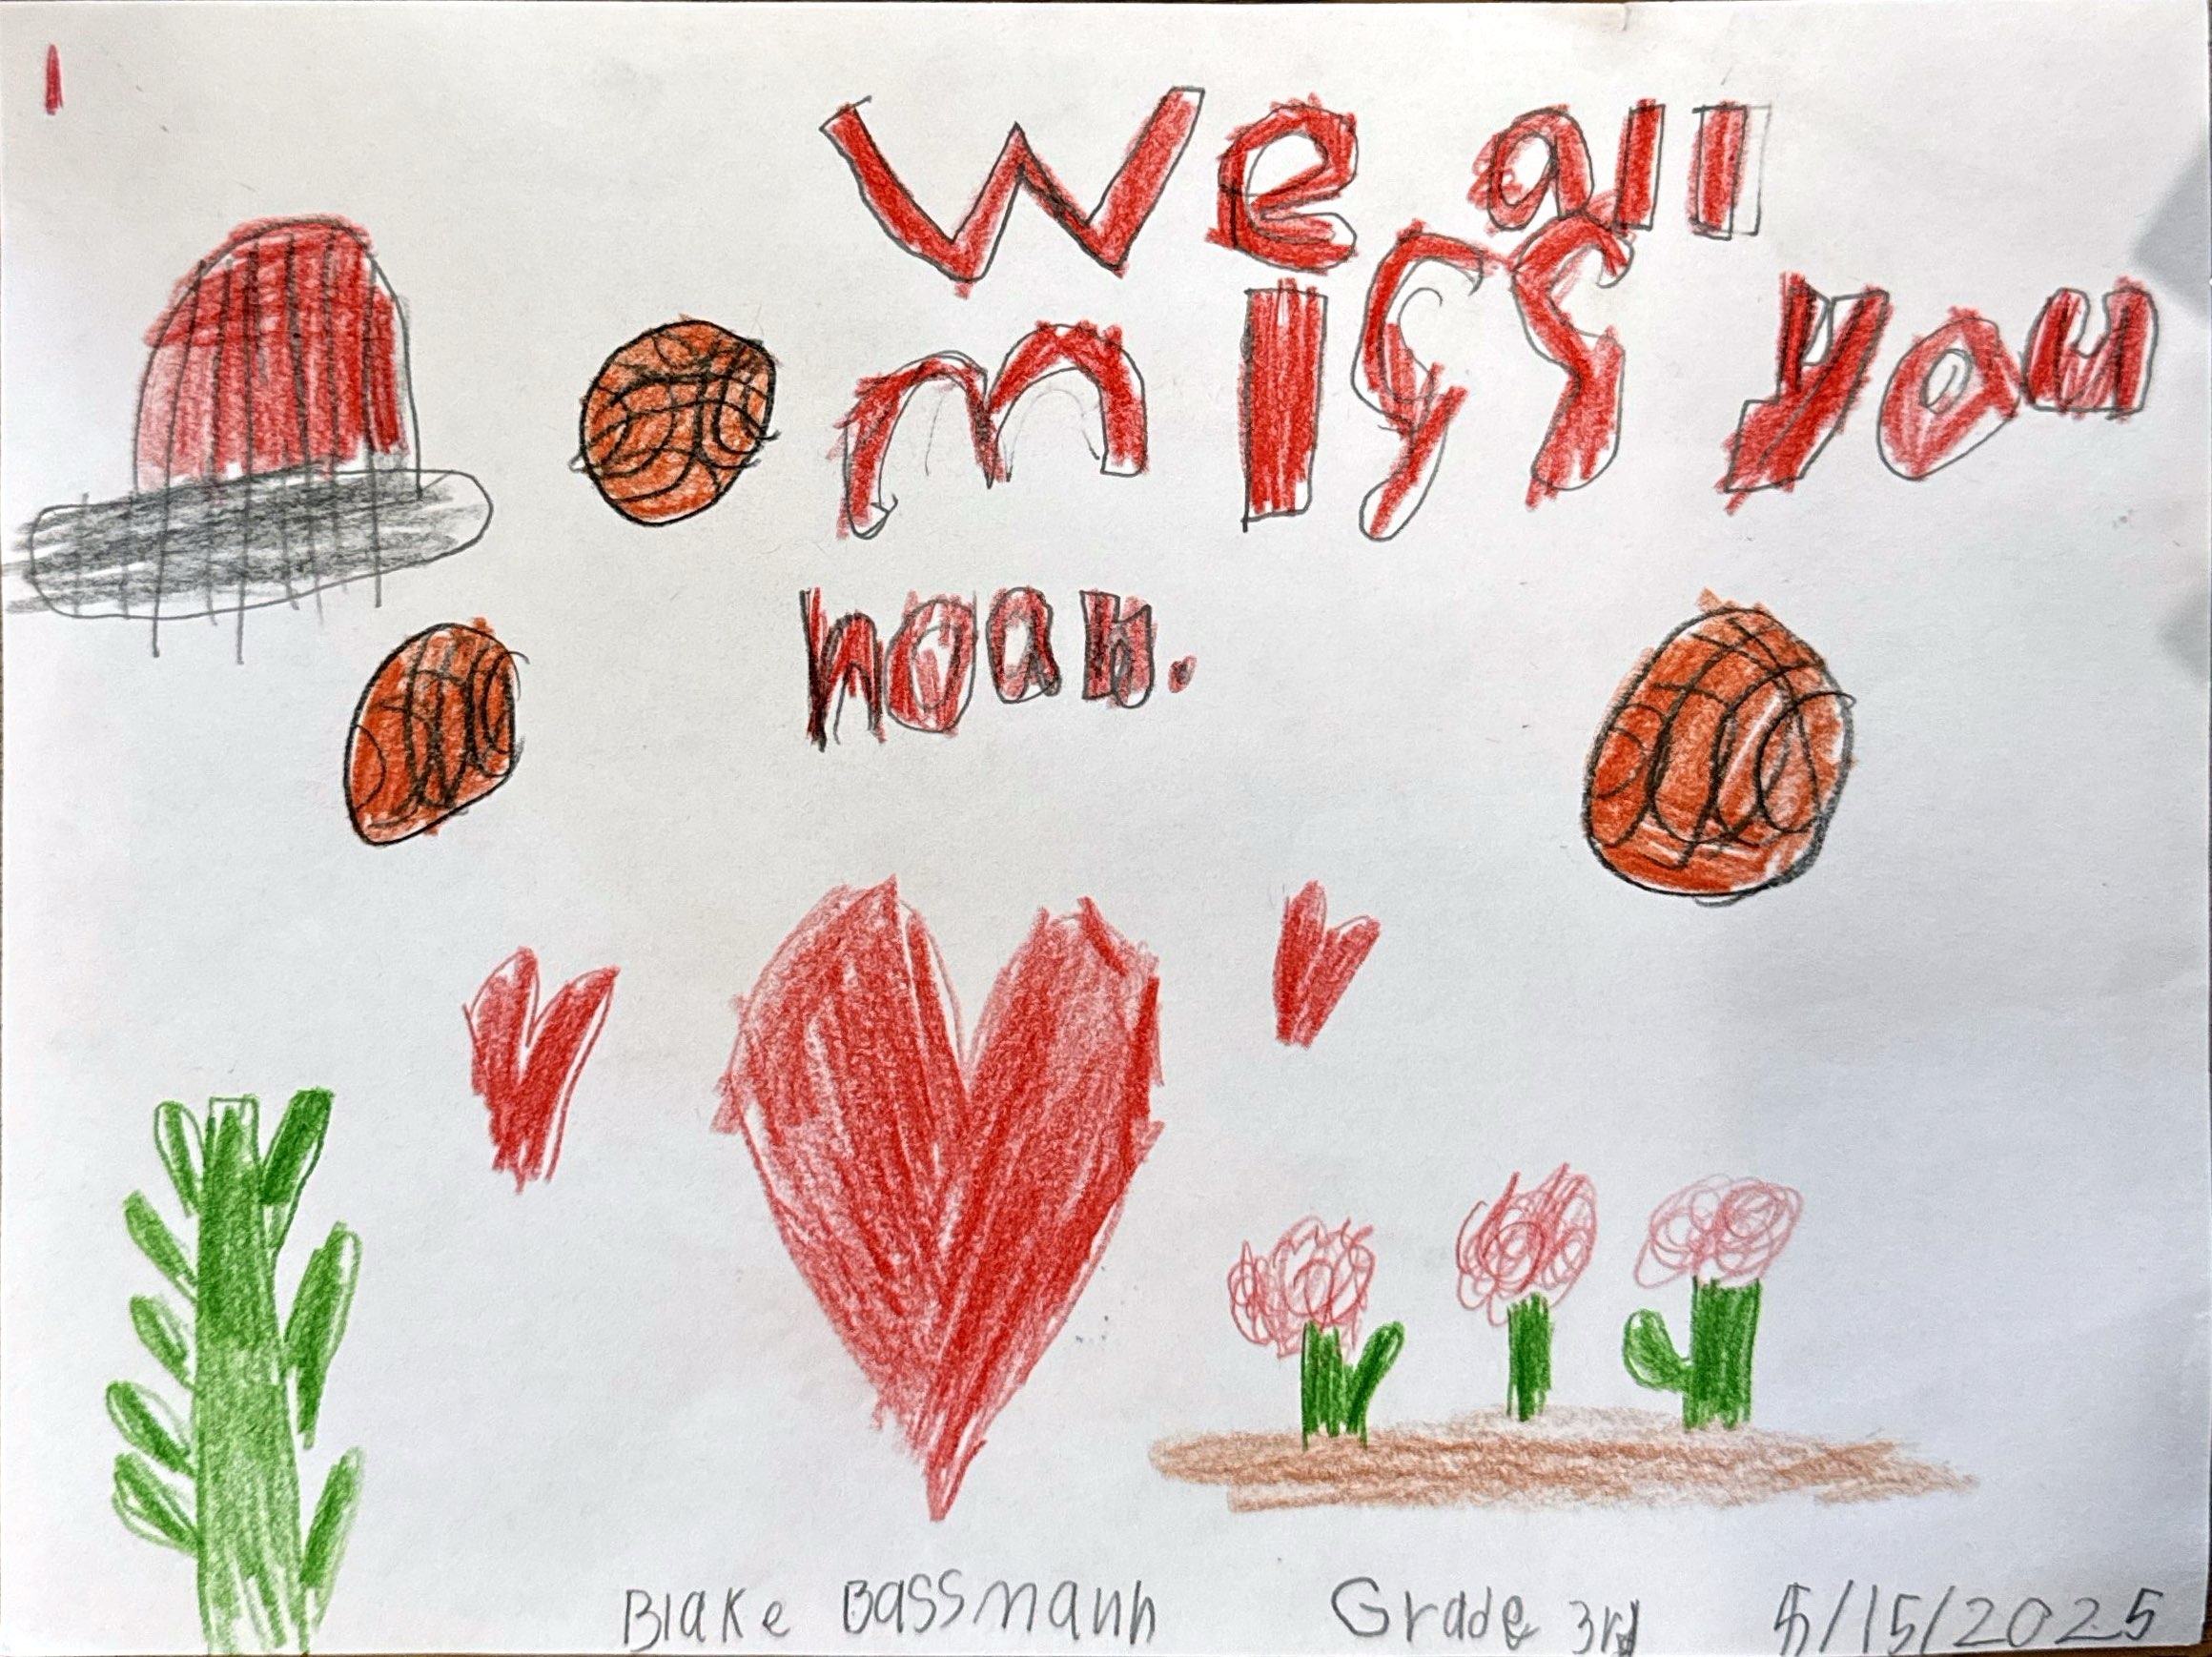 We all
miss you
noah.
Blake Bassmann Grade 3rd 5/15/2025